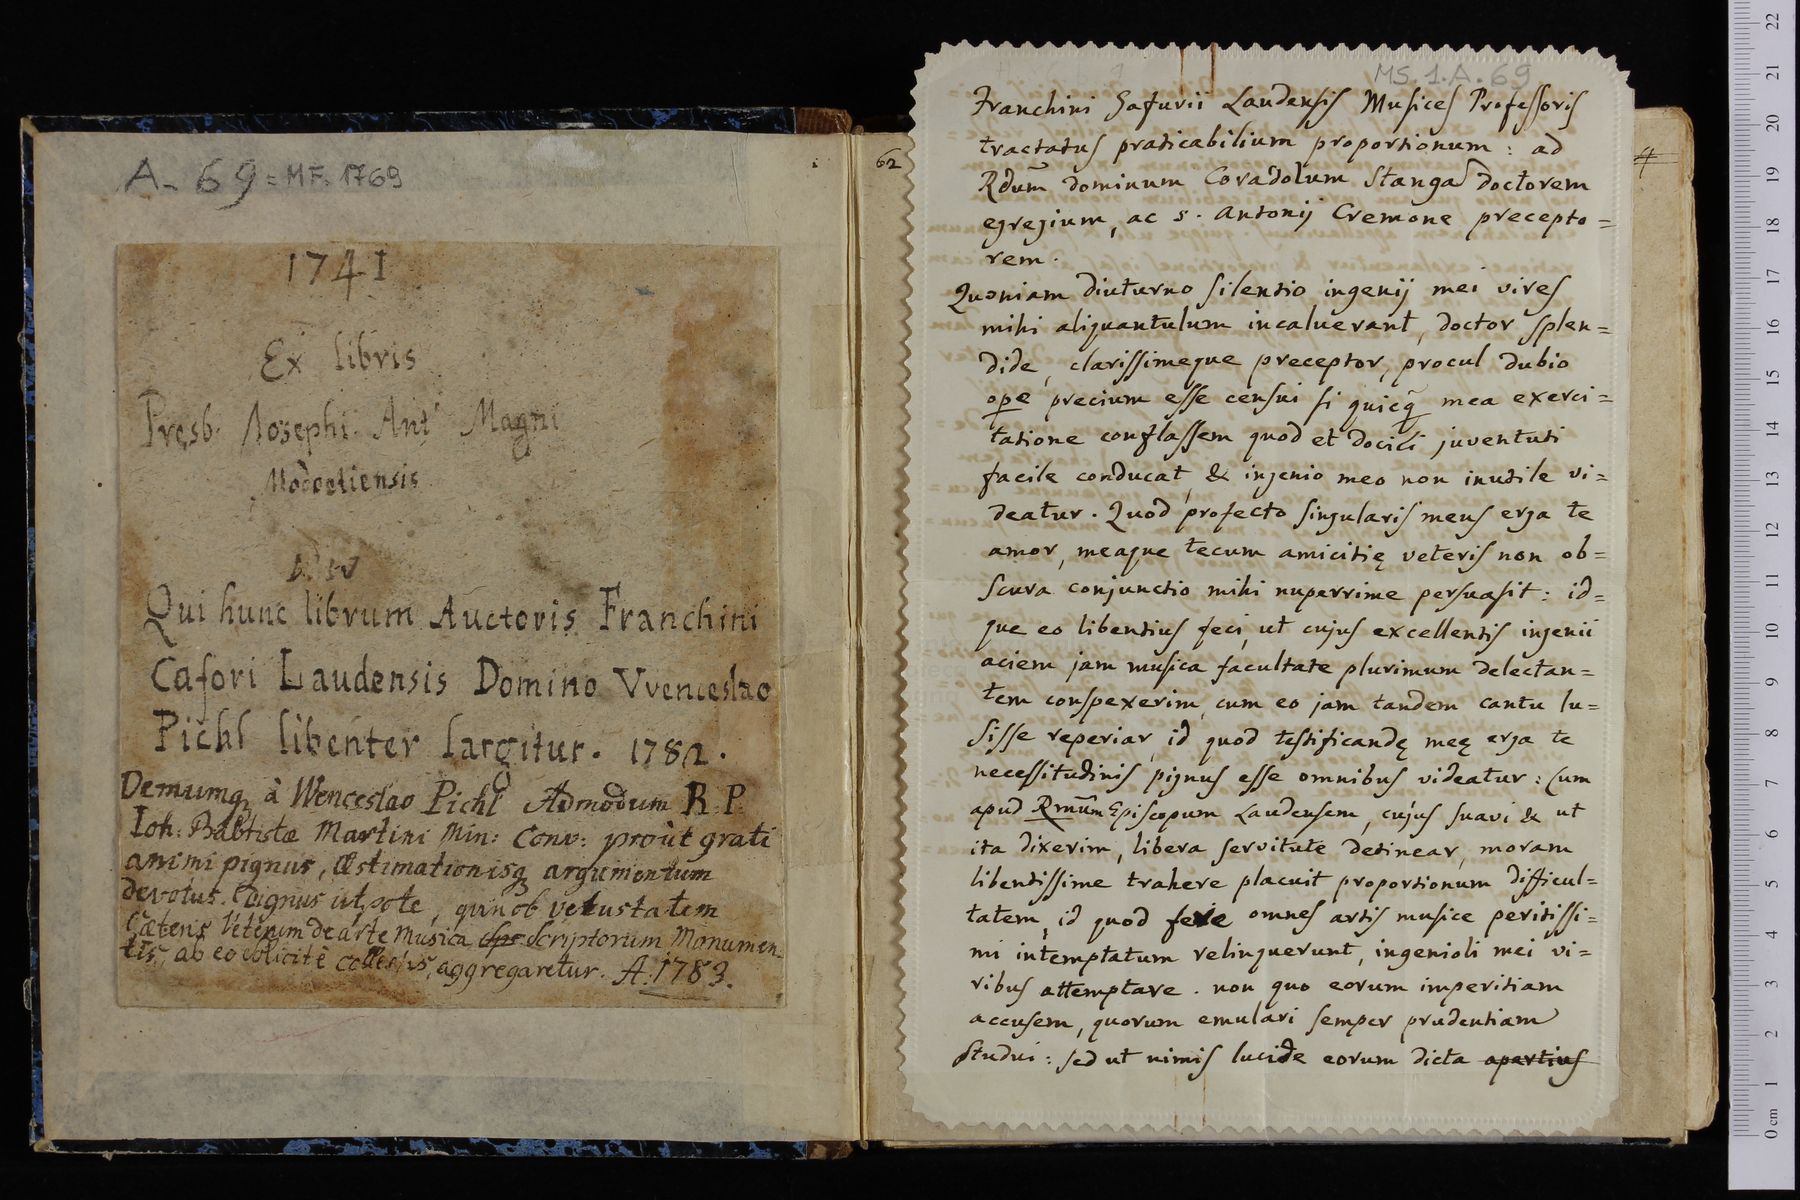 A- 69 = MF. 1769
1741
Ex libris
Presb. Josephi Ant. Magni
Modoetiensis
Qui hunc librum Auctoris Franchini
Cafori Laudensis Domino Vvenceslao
Pichl libenter largitur. 1782.
Demumq à Wenceslao Pichl Admodum R. P.
Ioh: Babtistæ Martini Min: Conv: proùt grati
animi pignus, Æstimationisq argumentum
devotus. Dignus utpote, qui ob vetustatem
Cæteris Veterum de arte Musica Scriptorum Monumen-
tis, ab eo colicitè collectis, aggregaretur. A. 1783.
62
MS. 1. A. 69
4
Franchini Gafurii Laudensis Musices Professoris
tractatus praticabilium proportionum : ad
Rdum̃ dominum Coradolum Stanga doctorem
egregium, ac s. Antonij Cremone precepto=
rem.
Quoniam diuturno silentio ingenij mei vires
mihi aliquantulum incaluerant, doctor splen=
dide, clarissimeque preceptor, procul dubio
ope precium esse censui si quicq̃ mea exerci=
tatione conflassem quod et docili juventuti
facile conducat, & ingenio meo non inutile vi=
deatur. Quod profecto singularis meus erga te
amor, meaque tecum amicitię veteris non ob=
scura conjunctio mihi nuperrime persuasit : id=
que eo libentius feci, ut cujus excellentis ingenii
aciem jam musica facultate plurimum delectan=
tem conspexerim, cum eo jam tandem cantu lu=
sisse reperiar, id quod testificandę meę erga te
necessitudinis pignus esse omnibus videatur : Cum
apud Rmũm Episcopum Laudensem, cujus suavi & ut
ita dixerim, libera servitute detinear, moram
libentissime trahere placuit proportionum difficul=
tatem, id quod fere omnes artis musice peritissi=
mi intemptatum relinquerunt, ingenioli mei vi=
ribus attemptare. non quo eorum imperitiam
accusem, quorum emulari semper prudentiam
studui : sed ut nimis lucide eorum dicta apertius